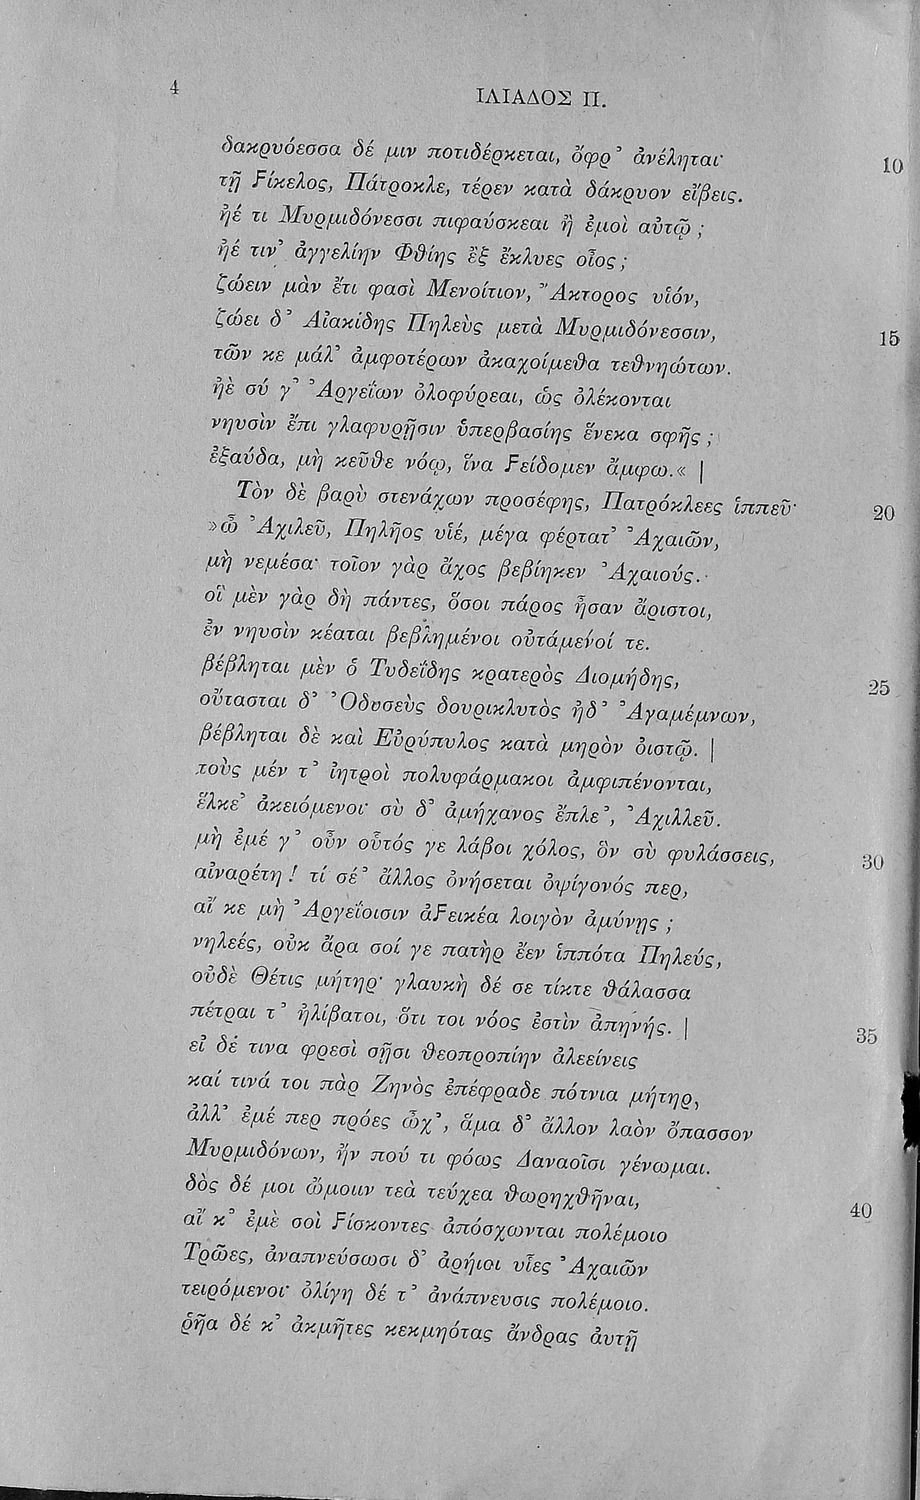 4
ΙΛΙΑΔΟΣ Π.
δακρυόεσσα δέ μιν ποτιδέρκεται, ὄφρ’ ἀνέληται· 10
τῇ Ϝίκελος, Πάτροκλε, τέρεν κατὰ δάκρυον εἴβεις.
ἠέ τι Μυρμιδόνεσσι πιφαύσκεαι ἢ ἐμοὶ αὐτῷ ;
ἠέ τιν’ ἀγγελίην Φθίης ἒξ ἔκλυες οἶος ;
ζώειν μὰν ἔτι φασὶ Μενοίτιον, Ἄκτορος υἱόν,
ζώει δ’ Αἰακίδης Πηλεὺς μετὰ Μυρμιδόνεσσιν, 15
τῶν κε μάλ’ ἀμφοτέρων ἀκαχοίμεθα τεθνηώτων.
ἠὲ σύ γ’ Ἀργεΐων ὀλοφύρεαι, ὡς ὀλέκονται
νηυσὶν ἔπι γλαφυρῇσιν ὑπερβασίης ἕνεκα σφῆς ;
ἐξαύδα, μὴ κεῦθε νόῳ, ἵνα Ϝείδομεν ἄμφω.« |
Τὸν δὲ βαρὺ στενάχων προσέφης, Πατρόκλεες ἱππεῦ· 20
»ὦ Ἀχιλεῦ, Πηλῆος υἱέ, μέγα φέρτατ’ Ἀχαιῶν,
μὴ νεμέσα· τοῖον γὰρ ἄχος βεβίηκεν Ἀχαιούς.
οἳ μὲν γὰρ δὴ πάντες, ὅσοι πάρος ἦσαν ἄριστοι,
ἐν νηυσὶν κέαται βεβλημένοι οὐτάμενοί τε.
βέβληται μὲν ὁ Τυδεΐδης κρατερὸς Διομήδης, 25
οὔτασται δ’ Ὀδυσεὺς δουρικλυτὸς ἠδ’ Ἀγαμέμνων,
βέβληται δὲ καὶ Εὐρύπυλος κατὰ μηρὸν ὀιστῷ. |
τοὺς μέν τ’ ἰητροὶ πολυφάρμακοι ἀμφιπένονται,
ἕλκε’ ἀκειόμενοι· σὺ δ’ ἀμήχανος ἔπλε’, Ἀχιλλεῦ.
μὴ ἐμέ γ’ οὖν οὗτός γε λάβοι χόλος, ὃν σὺ φυλάσσεις, 30
αἰναρέτη ! τί σέ’ ἄλλος ὀνήσεται ὀψίγονός περ,
αἴ κε μὴ Ἀργεΐοισιν ἀϜεικέα λοιγὸν ἀμύνῃς ;
νηλεές, οὐκ ἄρα σοί γε πατὴρ ἔεν ἱππότα Πηλεύς,
οὐδὲ Θέτις μήτηρ· γλαυκὴ δέ σε τίκτε θάλασσα
πέτραι τ’ ἠλίβατοι, ὅτι τοι νόος ἐστὶν ἀπηνής. | 35
εἰ δέ τινα φρεσὶ σῇσι θεοπροπίην ἀλεείνεις
καί τινά τοι πὰρ Ζηνὸς ἐπέφραδε πότνια μήτηρ,
ἀλλ’ ἐμέ περ πρόες ὦχ’, ἅμα δ’ ἄλλον λαὸν ὄπασσον
Μυρμιδόνων, ἤν πού τι φόως Δαναοῖσι γένωμαι.
δὸς δέ μοι ὤμοιιν τεὰ τεύχεα θωρηχθῆναι, 40
αἴ κ’ ἐμὲ σοὶ Ϝίσκοντες ἀπόσχωνται πολέμοιο
Τρῶες, ἀναπνεύσωσι δ’ ἀρήιοι υἷες Ἀχαιῶν
τειρόμενοι· ὀλίγη δέ τ’ ἀνάπνευσις πολέμοιο.
ῥῆα δέ κ’ ἀκμῆτες κεκμηότας ἄνδρας ἀυτῇ